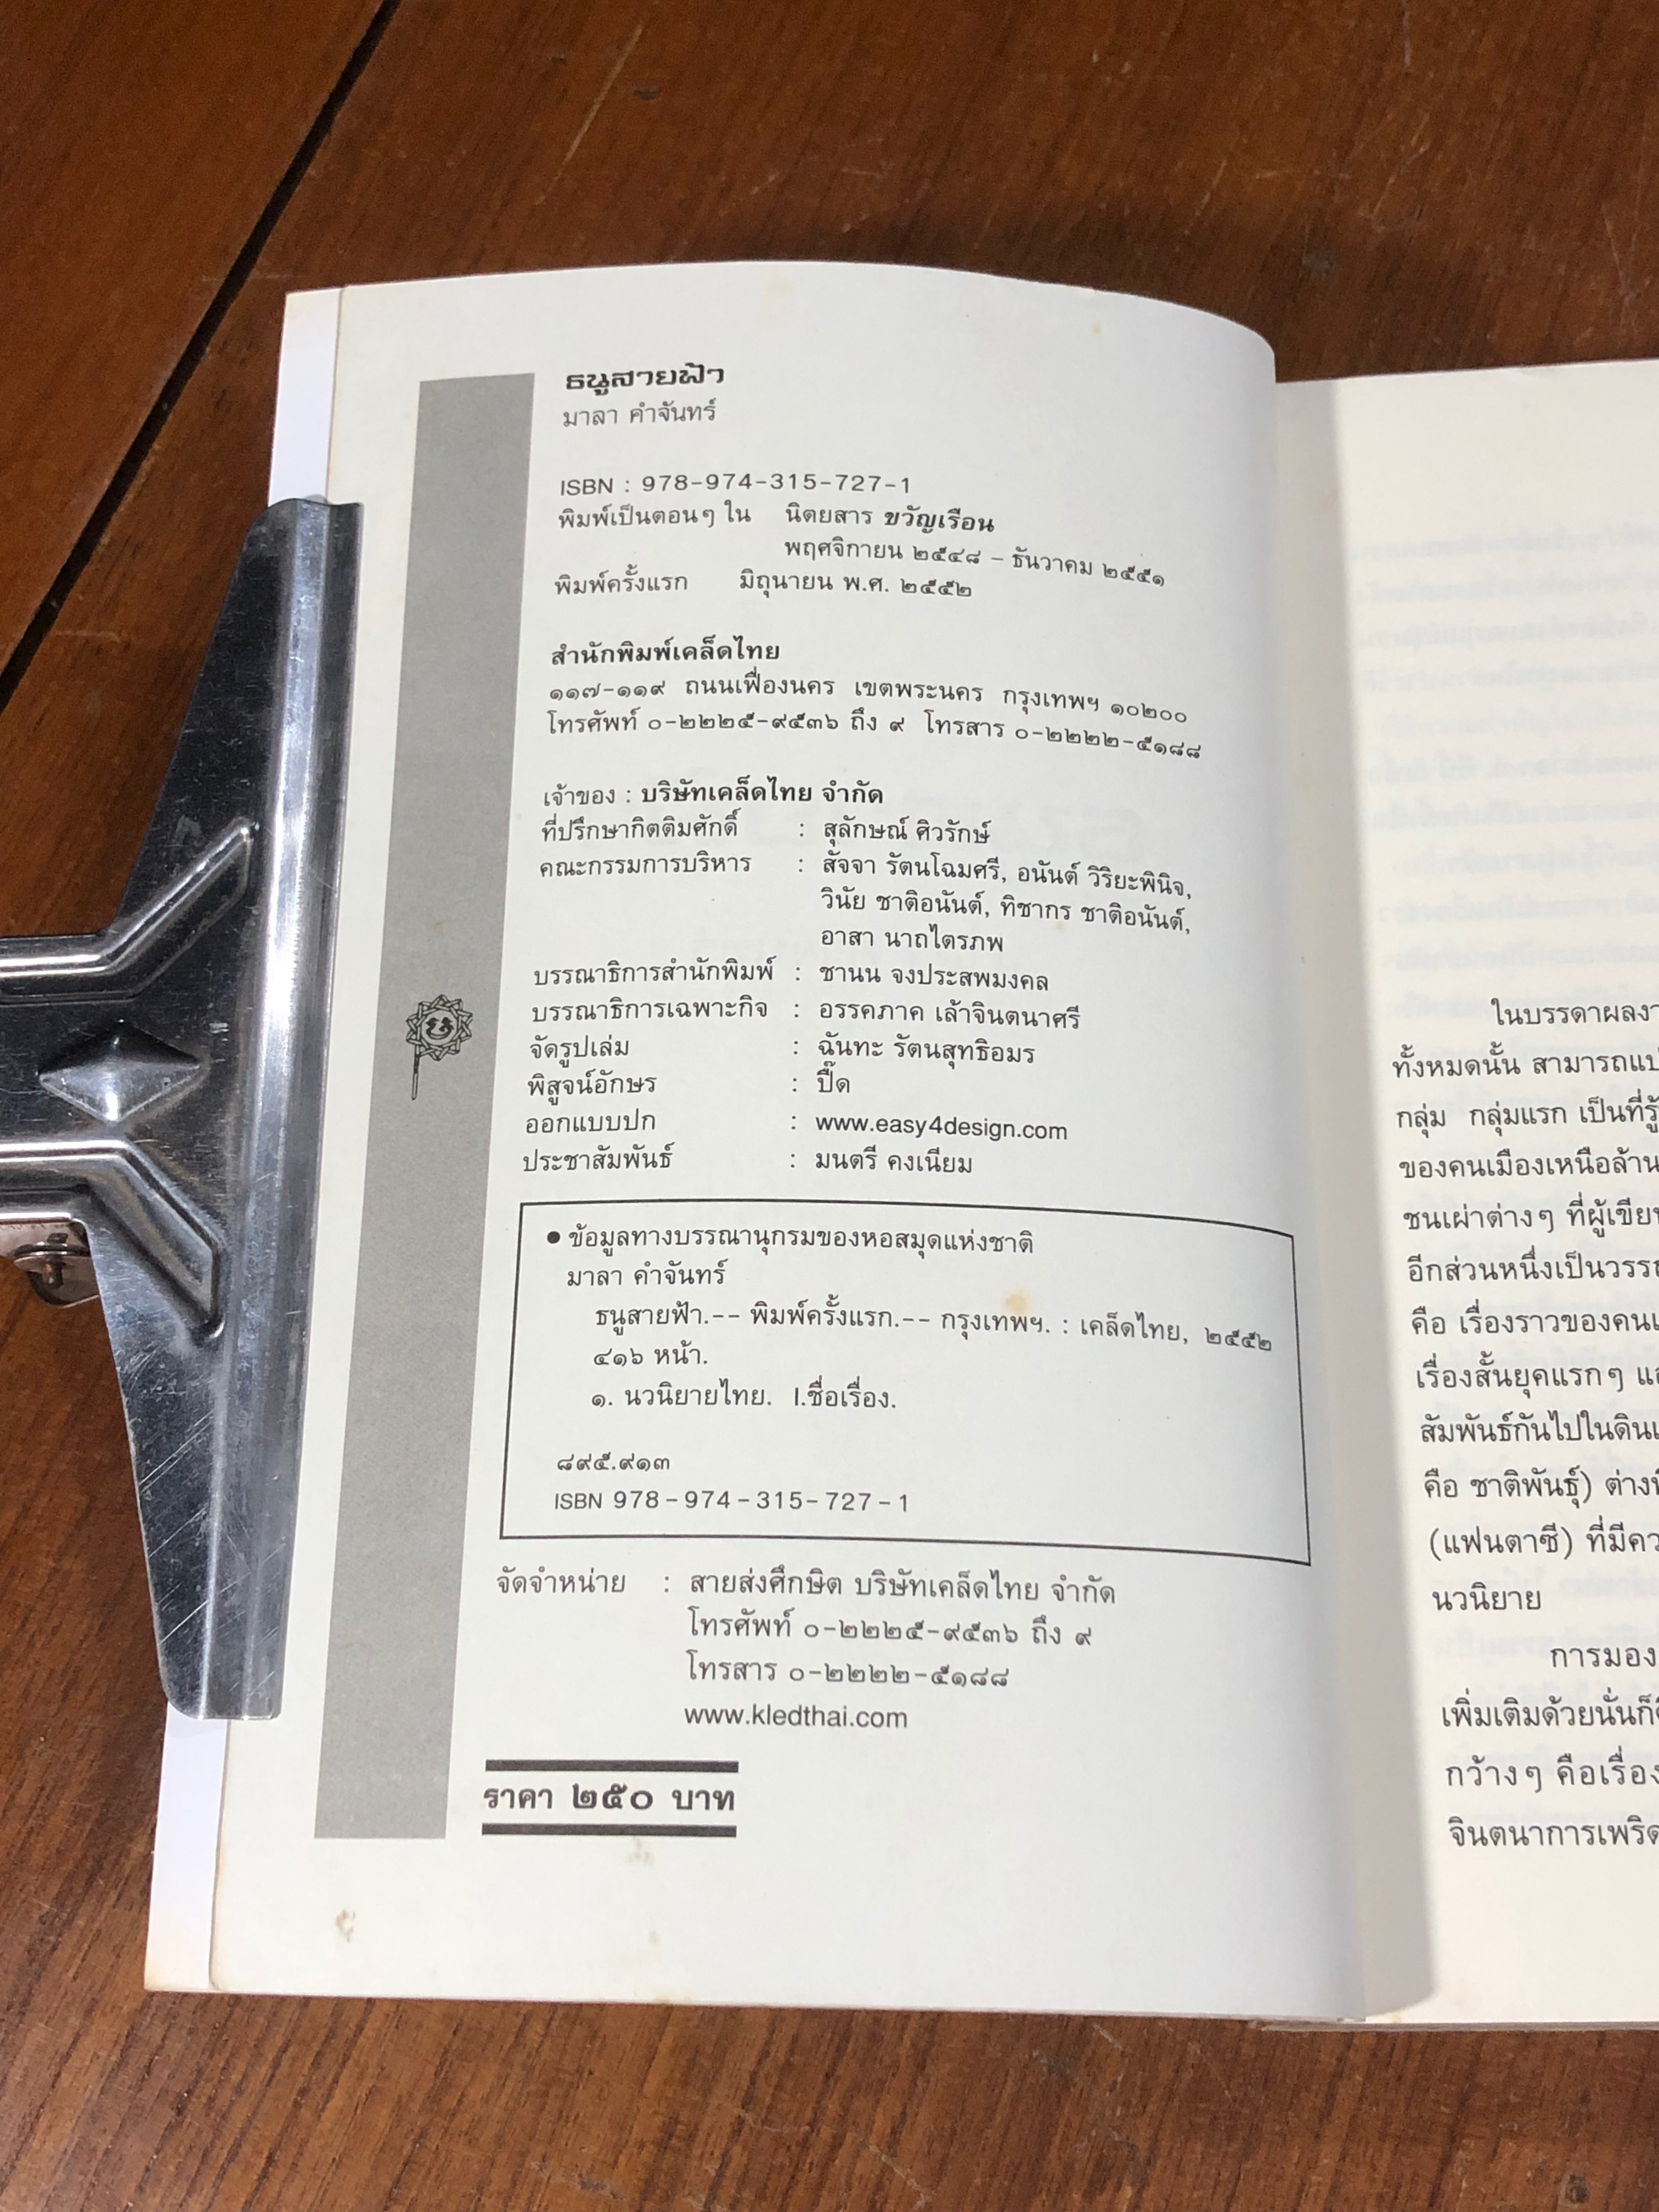 ธนูสายฟ้า
มาลา คำจันทร์
ISBN : 978-974-315-727-1
พิมพ์เป็นตอนๆ ใน นิตยสาร ขวัญเรือน
พฤศจิกายน ๒๕๔๘ – ธันวาคม ๒๕๕๑
พิมพ์ครั้งแรก มิถุนายน พ.ศ. ๒๕๕๒
สำนักพิมพ์เคล็ดไทย
๑๑๗-๑๑๙ ถนนเฟื่องนคร เขตพระนคร กรุงเทพฯ ๑๐๒๐๐
โทรศัพท์ ๐-๒๒๒๕-๙๕๓๖ ถึง ๙ โทรสาร ๐-๒๒๒๒-๕๑๘๘
เจ้าของ : บริษัทเคล็ดไทย จำกัด
ที่ปรึกษากิตติมศักดิ์ : สุลักษณ์ ศิวรักษ์
คณะกรรมการบริหาร : สัจจา รัตนโฉมศรี, อนันต์ วิริยะพินิจ,
วินัย ชาติอนันต์, ทิชากร ชาติอนันต์,
อาสา นาถไตรภพ
บรรณาธิการสำนักพิมพ์ : ชานน จงประสพมงคล
บรรณาธิการเฉพาะกิจ : อรรคภาค เล้าจินตนาศรี
จัดรูปเล่ม : ฉันทะ รัตนสุทธิอมร
พิสูจน์อักษร : ปื๊ด
ออกแบบปก : www.easy4design.com
ประชาสัมพันธ์ : มนตรี คงเนียม
● ข้อมูลทางบรรณานุกรมของหอสมุดแห่งชาติ
มาลา คำจันทร์
ธนูสายฟ้า.-- พิมพ์ครั้งแรก.-- กรุงเทพฯ. : เคล็ดไทย, ๒๕๕๒
๔๑๖ หน้า.
๑. นวนิยายไทย. I.ชื่อเรื่อง.
๘๙๕.๙๑๓
ISBN 978-974-315-727-1
จัดจำหน่าย : สายส่งศึกษิต บริษัทเคล็ดไทย จำกัด
โทรศัพท์ ๐-๒๒๒๕-๙๕๓๖ ถึง ๙
โทรสาร ๐-๒๒๒๒-๕๑๘๘
www.kledthai.com
ราคา ๒๕๐ บาท
ในบรรดาผลงา
ทั้งหมดนั้น สามารถแบ
กลุ่ม กลุ่มแรก เป็นที่รู้
ของคนเมืองเหนือล้าน
ชนเผ่าต่างๆ ที่ผู้เขีย
อีกส่วนหนึ่งเป็นวรร
คือ เรื่องราวของคน
เรื่องสั้นยุคแรกๆ แ
สัมพันธ์กันไปในดิน
คือ ชาติพันธุ์) ต่าง
(แฟนตาซี) ที่มีคว
นวนิยาย
การมอง
เพิ่มเติมด้วยนั่นก็
กว้างๆ คือเรื่อง
จินตนาการเพริด